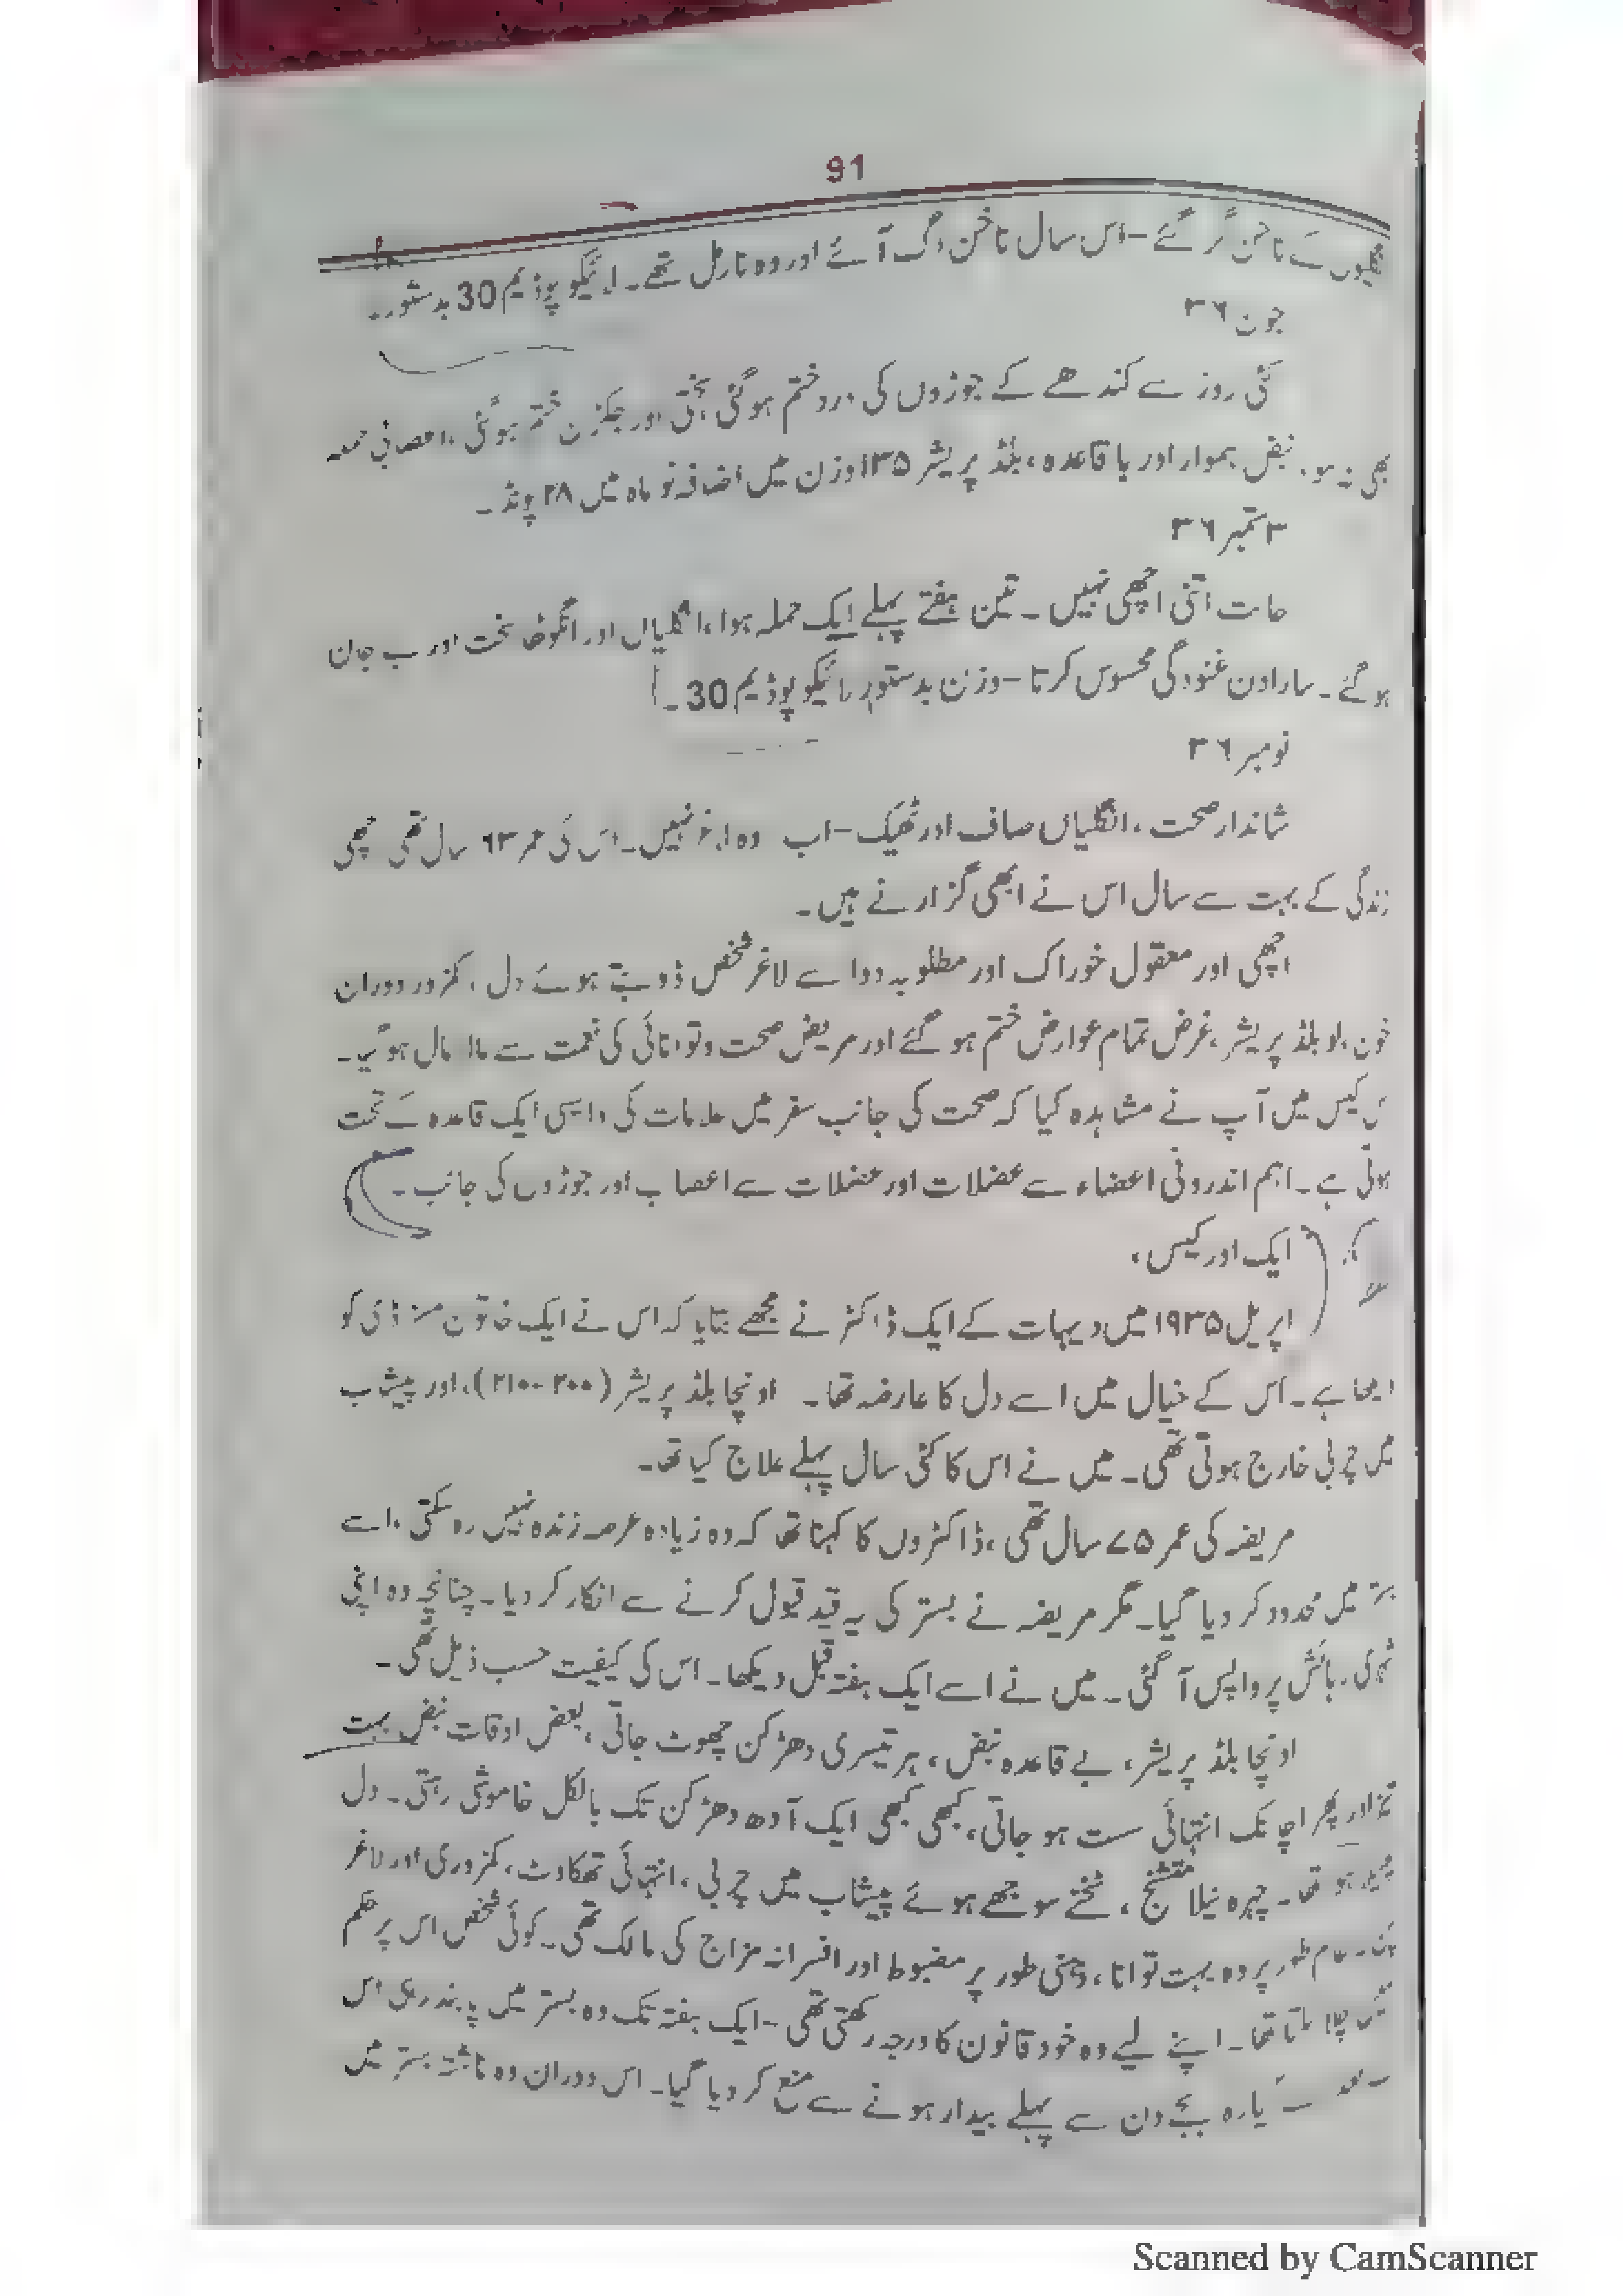 91
ناخن گر گئے - اس سال ناخن اگ آئے اور وہ نارمل تھے۔ لائیکو پوڈیم 30 بدستور۔
جون ۳۶
کئی روز سے کندھے کے جوڑوں کی درد ختم ہو گئی، سختی اور جکڑن ختم ہو گئی، اعصابی حملہ
بھی نہ ہوا، نبض ہموار اور باقاعدہ، بلڈ پریشر ۱۳۵ وزن میں اضافہ نو ماہ میں ۲۸ پونڈ۔
۳ ستمبر ۳۶
حالت اتنی اچھی نہیں۔ تین ہفتے پہلے ایک حملہ ہوا، انگلیاں اور انگوٹھا سخت اور بے جان
ہو گئے۔ سارا دن غنودگی محسوس کرتا - وزن بدستور لائیکو پوڈیم 30۔
نومبر ۳۶
شاندار صحت، انگلیاں صاف اور ٹھیک - اب وہ لاغر نہیں۔ اس کی عمر ۶۳ سال تھی اچھی
زندگی کے بہت سے سال اس نے ابھی گزارنے ہیں۔
اچھی اور معقول خوراک اور مطلوبہ دوا سے لاغر شخص ڈوبتے ہوئے دل، کمزور دوران
خون، لو بلڈ پریشر، غرض تمام عوارض ختم ہو گئے اور مریض صحت و توانائی کی نعمت سے مالا مال ہو گیا۔
اس کیس میں آپ نے مشاہدہ کیا کہ صحت کی جانب سفر میں علامات کی واپسی ایک قاعدہ کے تحت
ہوتی ہے۔ اہم اندرونی اعضاء سے عضلات اور عضلات سے اعصاب اور جوڑوں کی جانب۔
ایک اور کیس،
اپریل ۱۹۳۵ میں دیہات کے ایک ڈاکٹر نے مجھے بتایا کہ اس نے ایک خاتون مسز ڈی کو
دیکھا ہے۔ اس کے خیال میں اسے دل کا عارضہ تھا۔ اونچا بلڈ پریشر (۲۰۰-۲۱۰)، اور پیشاب
میں چربی خارج ہوتی تھی۔ میں نے اس کا کئی سال پہلے علاج کیا تھا۔
مریضہ کی عمر ۷۵ سال تھی، ڈاکٹروں کا کہنا تھا کہ وہ زیادہ عرصہ زندہ نہیں رہ سکتی، اسے
بستر میں محدود کر دیا گیا۔ مگر مریضہ نے بستر کی یہ قید قبول کرنے سے انکار کر دیا۔ چنانچہ وہ اپنی
شہری رہائش پر واپس آ گئی۔ میں نے اسے ایک ہفتہ قبل دیکھا۔ اس کی کیفیت حسب ذیل تھی۔
اونچا بلڈ پریشر، بے قاعدہ نبض، ہر تیسری دھڑکن چھوٹ جاتی، بعض اوقات نبض بہت
تیز اور پھر اچانک انتہائی سست ہو جاتی، کبھی کبھی ایک آدھ دھڑکن تک بالکل خاموشی رہتی۔ دل
پھیلا ہوا تھا۔ چہرہ نیلا متشنج، ٹخنے سوجھے ہوئے پیشاب میں چربی، انتہائی تھکاوٹ، کمزوری اور لاغر
پن۔ عام طور پر وہ بہت توانا، ذہنی طور پر مضبوط اور افسرانہ مزاج کی مالک تھی۔ کوئی شخص اس پر حکم
نہیں چلا سکتا تھا۔ اپنے لیے وہ خود قانون کا درجہ رکھتی تھی - ایک ہفتہ تک وہ بستر میں پابند رہی اس
گیارہ بجے دن سے پہلے بیدار ہونے سے منع کر دیا گیا۔ اس دوران وہ ناشتہ بستر میں
Scanned by CamScanner